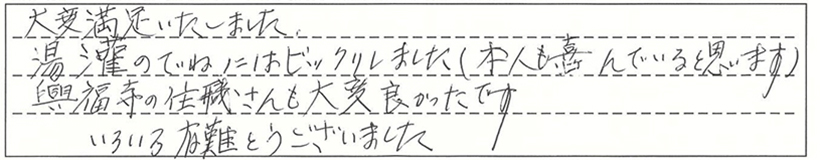 大変満足いたしました。
湯灌のていねいにはビックリしました(本人も喜んでいると思います)
興福寺の住職さんも大変良かったです
いろいろ有難とうございました